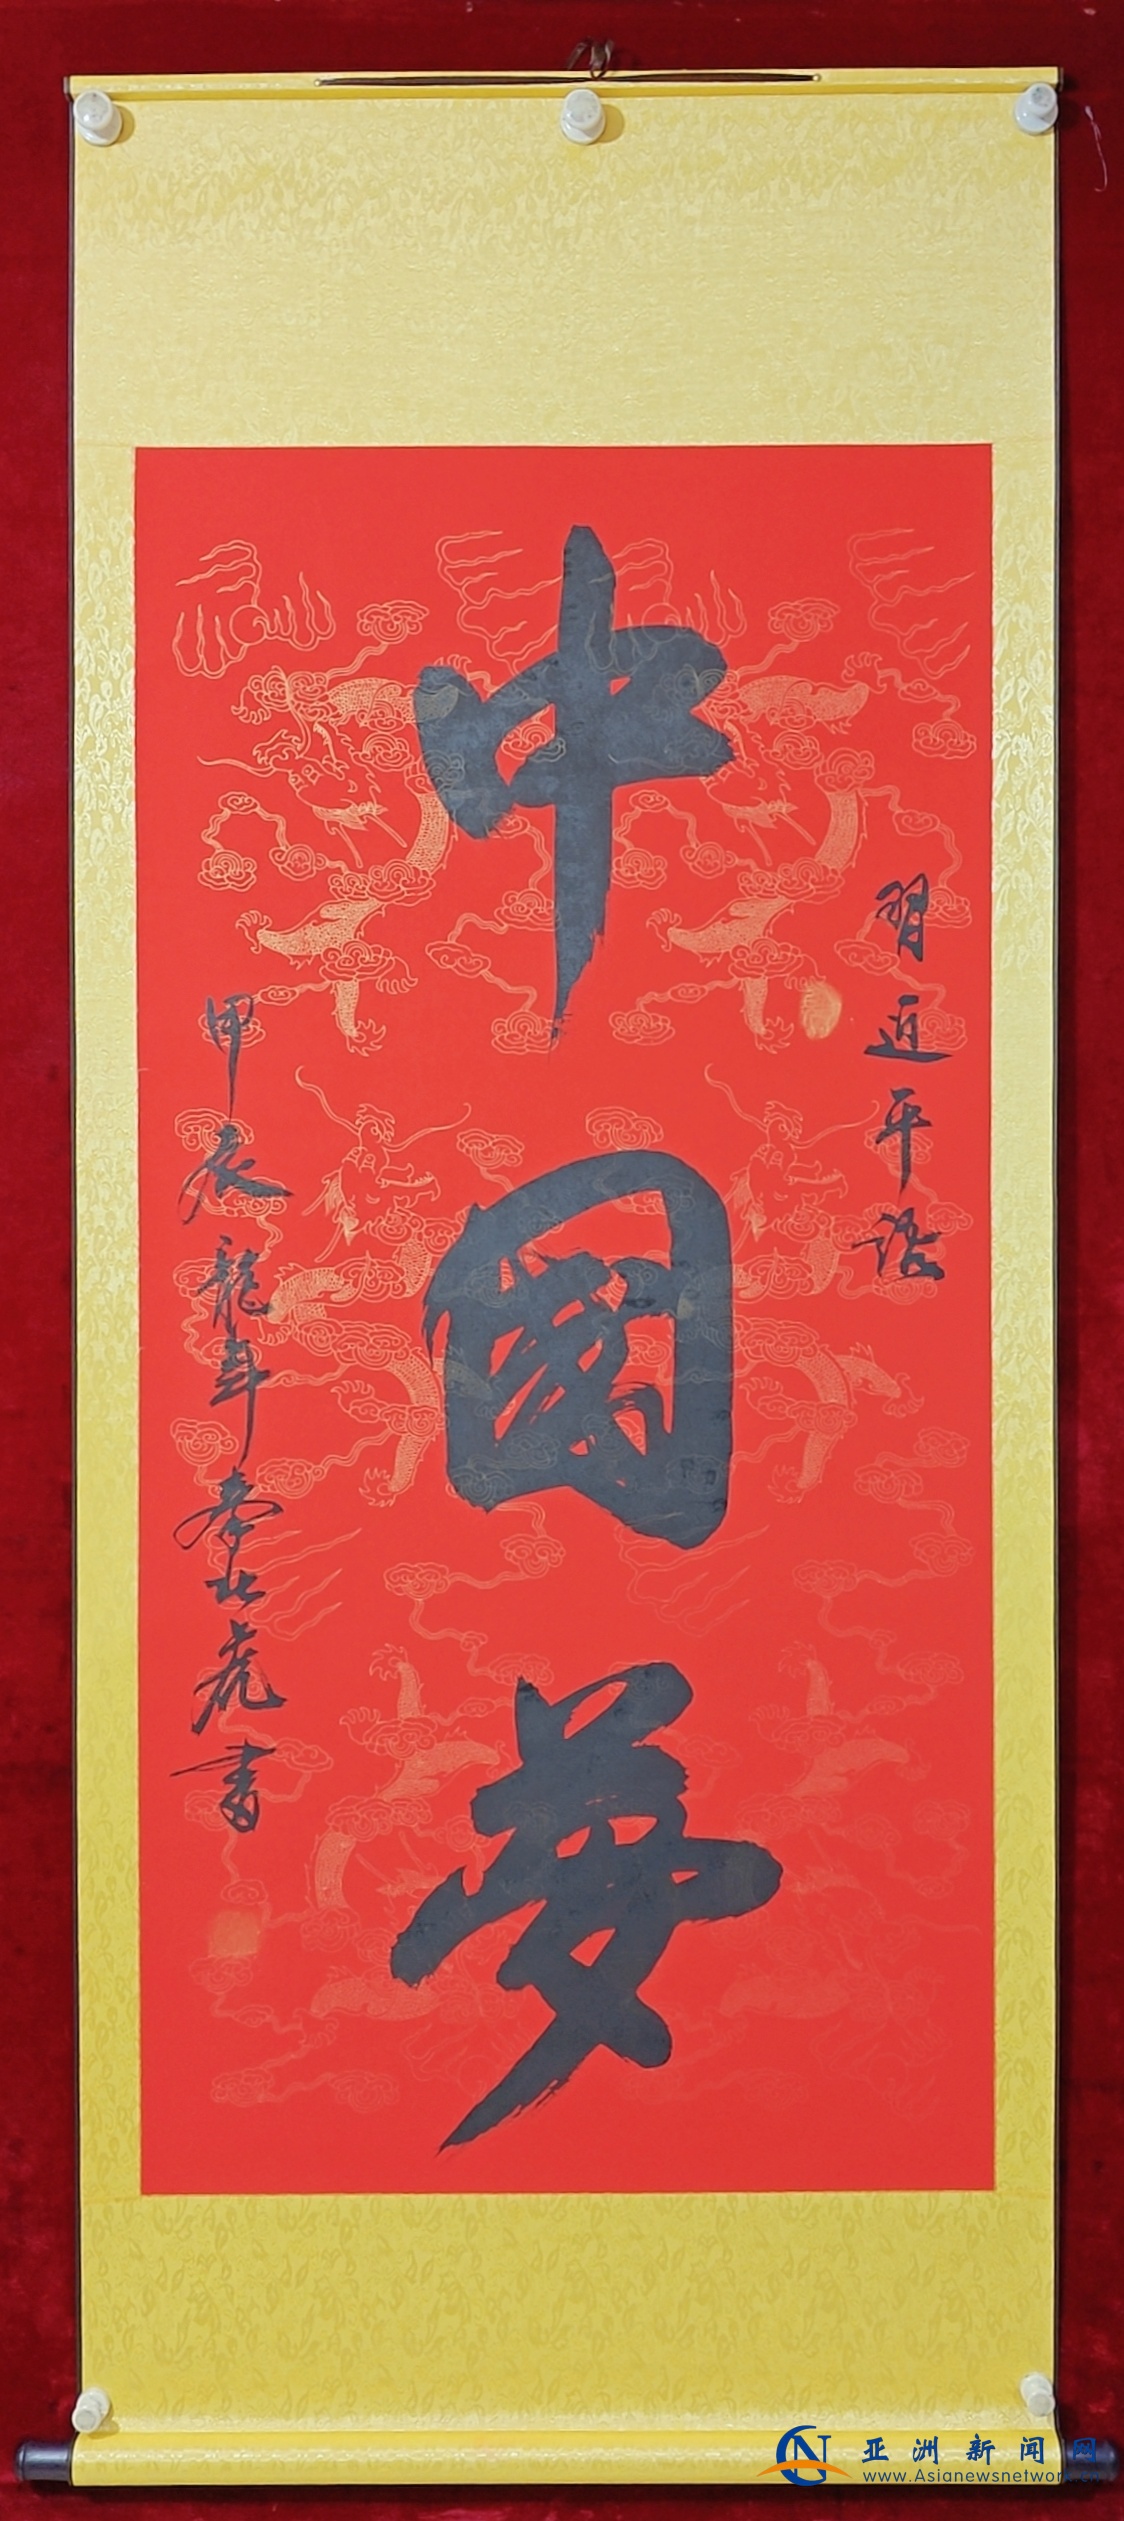 習近平語
中國夢
甲辰龍年李北虎書
亚洲新闻网
www.Asianewsnetwork.cn